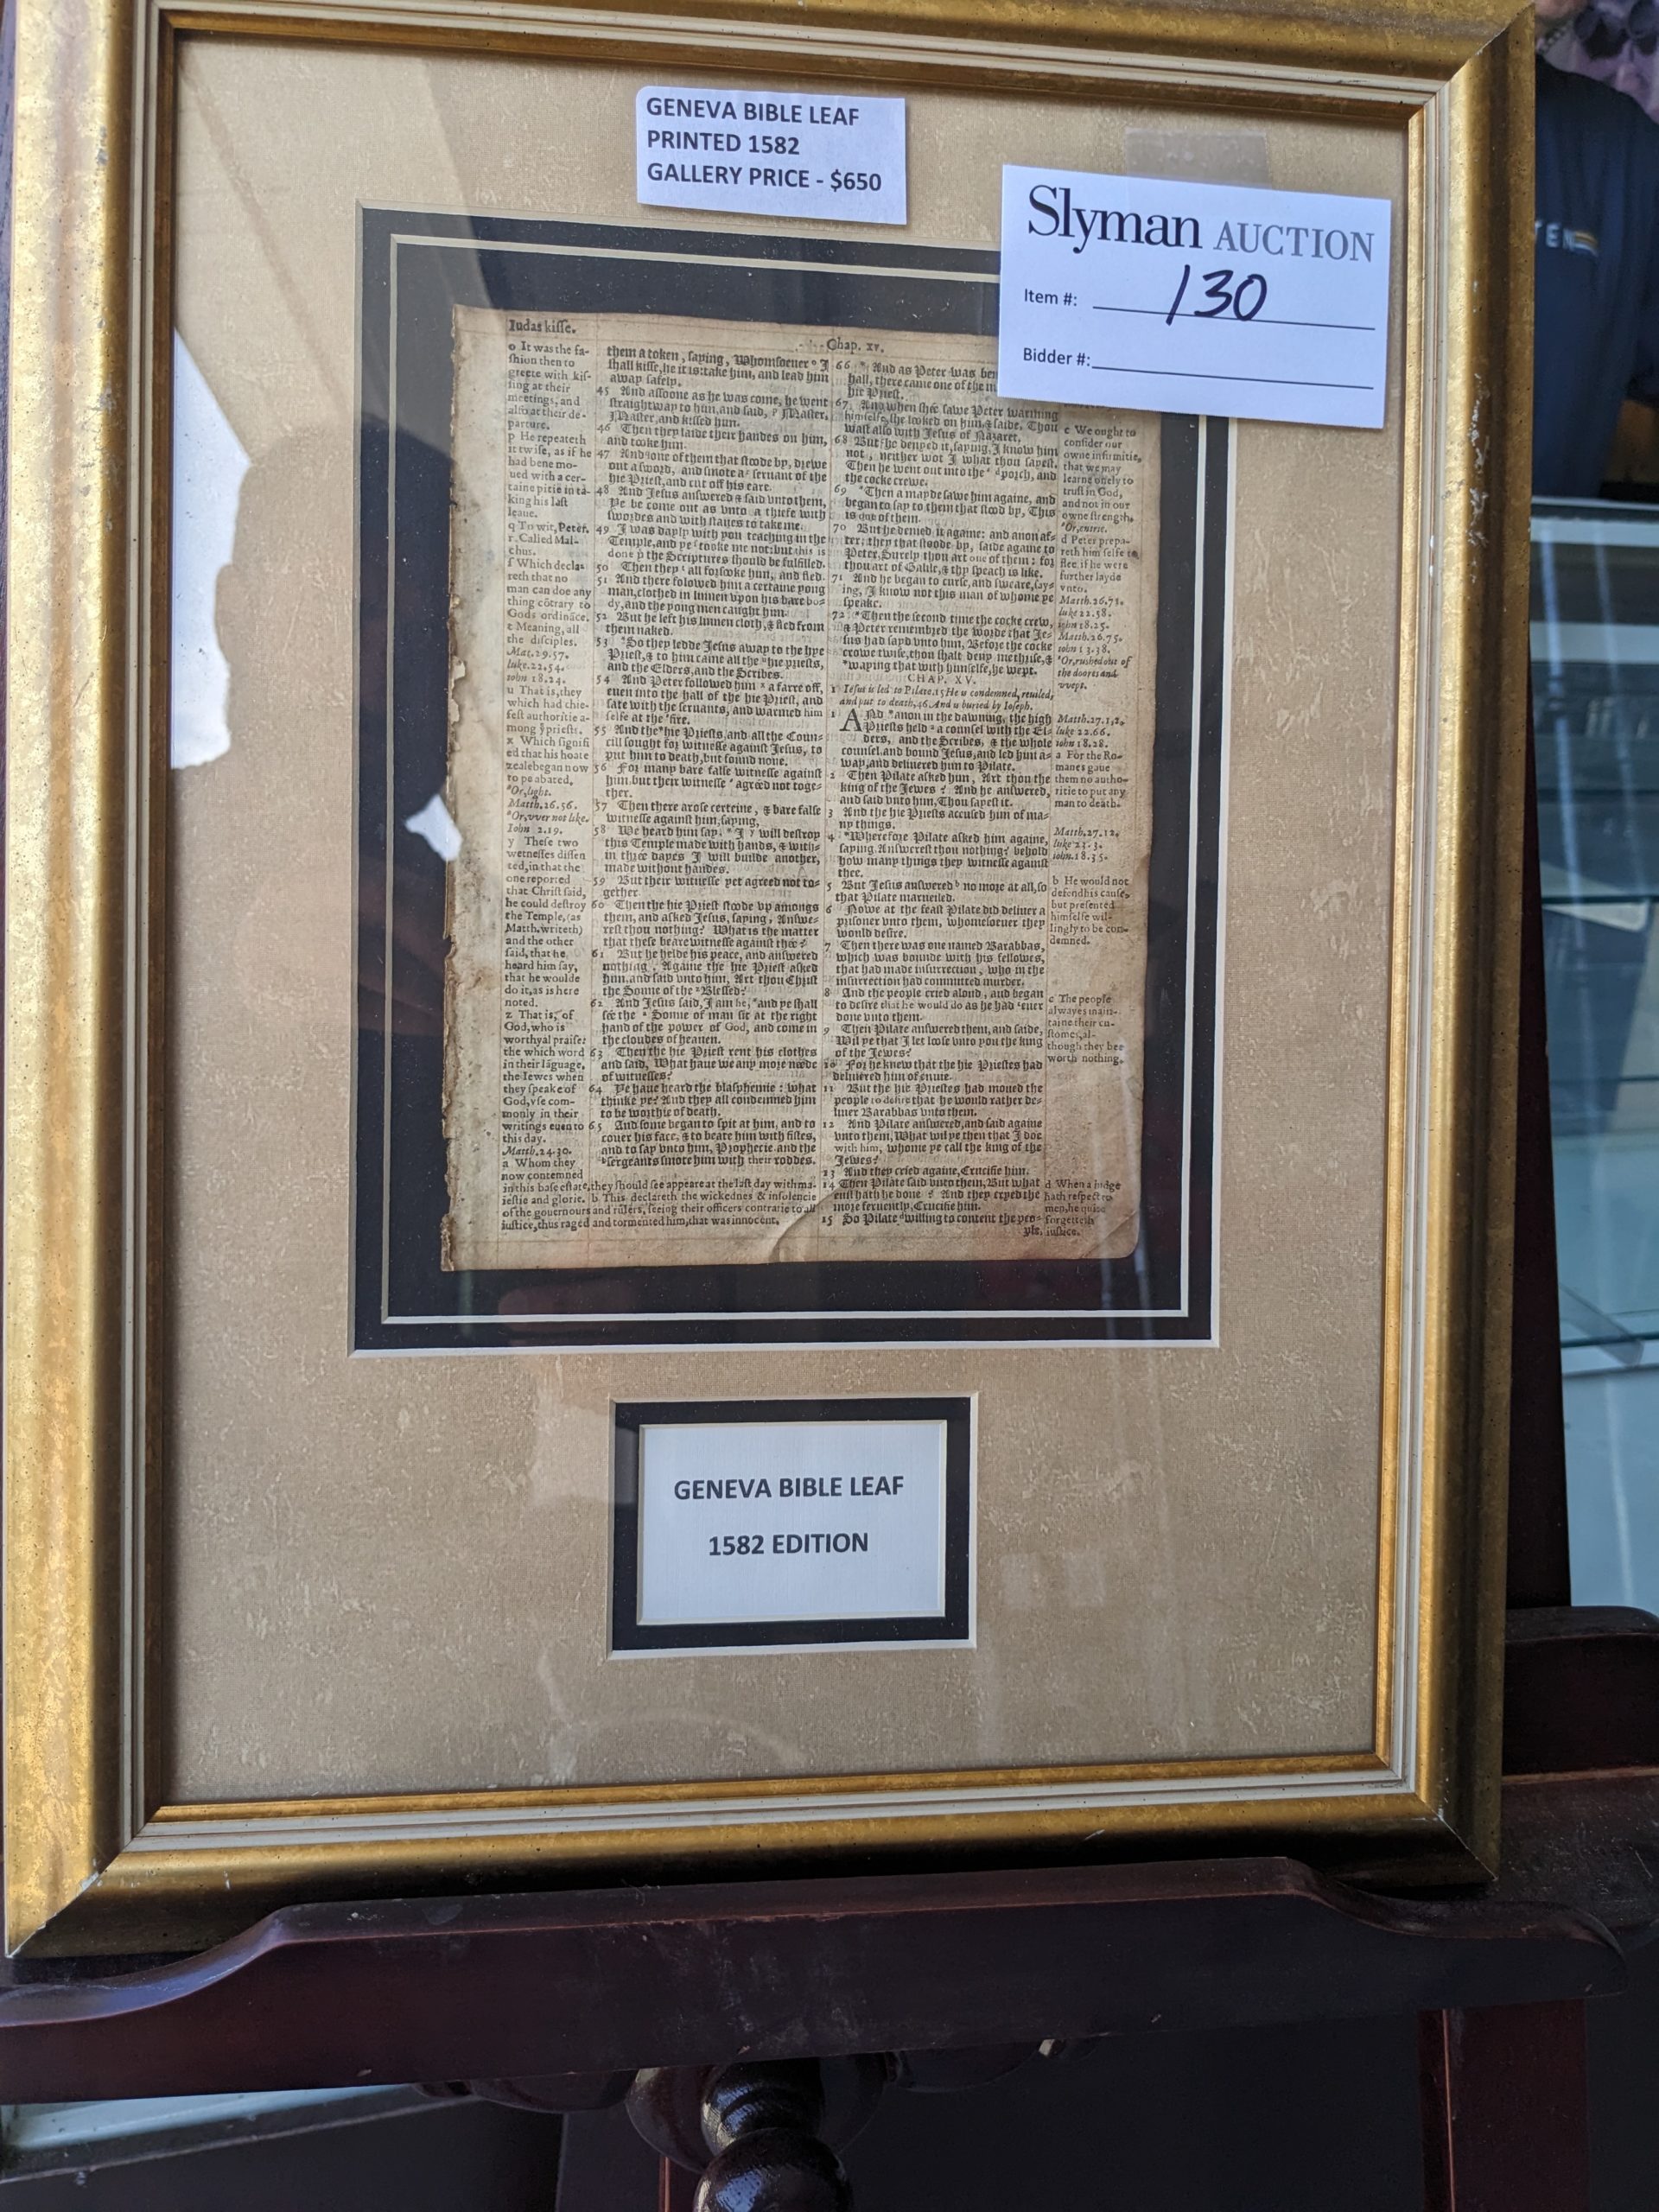 GENEVA BIBLE LEAF
PRINTED 1582
GALLERY PRICE - $650
Slyman AUCTION
Item #: 130
Bidder #:
Iudas kisse.
Chap. xv.
o It was the fa-
shion then to
greete with kis-
sing at their
meetings, and
also at their de-
parture.
p He repeateth
it twise, as if he
had bene mo-
ued with a cer-
taine pitie in ta-
king his last
leaue.
q To wit, Peter.
r Called Mal-
chus.
s Which decla-
reth that no
man can doe any
thing cōtrary to
Gods ordinãce.
t Meaning, all
the disciples.
luke.22.54.
iohn 18.24.
u That is, they
which had chie-
fest authoritie a-
mong yͤ priests.
x Which signifi
ed that his hoate
zeale began now
to be abated.
"Or, light.
Matth.26.56.
Iohn 2.19.
y These two
witnesses dissen
ted, in that the
one reported
that Christ said,
he could destroy
the Temple, (as
Matth. writeth)
and the other
said, that he
heard him say,
that he woulde
do it, as is here
noted.
z That is, of
God, who is
worthy al praise:
the which word
in their lãguage,
the Iewes when
they speake of
God, vse com-
monly in their
writings euen to
this day.
Matth.24.30.
a Whom they
now contemned
in this base estate, they should see appeare at the last day with ma-
iestie and glorie. b This declareth the wickednes & insolencie
of the gouernours and rulers, seeing their officers contrarie to all
iustice, thus raged and tormented him, that was innocent.
them a token, saying, Whomsoeuer ° I
shall kisse, he it is: take him, and lead him
away safely.
45 And assoone as he was come, he went
straightway to him, and said, p Master,
Master, and kissed him.
46 Then they laide their handes on him,
and tooke him.
47 And one of them that stoode by, drewe
out a sword, and smote a r seruant of the
hie Priest, and cut off his eare.
48 And Jesus answered & said vnto them,
Ye be come out as vnto a thiefe with
swordes and with staues to take me.
49 I was dayly with you teaching in the
Temple, and ye s tooke me not: but this is
done yͭ the Scriptures should be fulfilled.
50 Then they t all forsooke him, and fled.
51 And there folowed him a certaine yong
man, clothed in linnen vpon his bare bo-
dy, and the yong men caught him.
52 But he left his linnen cloth, & fled from
them naked.
53 *So they ledde Jesus away to the hye
Priest, & to him came all the u hie priests,
and the Elders, and the Scribes.
54 And Peter followed him x a farre off,
euen into the hall of the hie Priest, and
sate with the seruants, and warmed him
selfe at the "fire.
55 And the *hie Priests, and all the Coun-
cill sought for witnesse against Jesus, to
put him to death, but found none.
56 For many bare false witnesse against
him, but their witnesse "agreed not toge-
ther.
57 Then there arose certeine, & bare false
witnesse against him, saying,
58 We heard him say, *I y will destroy
this Temple made with hands, & with-
in three dayes I will builde another,
made without handes.
59 But their witnesse yet agreed not to-
gether.
60 Then the hie Priest stoode vp amongs
them, and asked Jesus, saying, Answe-
rest thou nothing? What is the matter
that these beare witnesse against thee?
61 But he helde his peace, and answered
nothing. Againe the hie Priest asked
him, and said vnto him, Art thou Christ
the Sonne of the z Blessed?
62 And Jesus said, I am he, *and ye shall
see the a Sonne of man sit at the right
hand of the power of God, and come in
the cloudes of heauen.
63 Then the hie Priest rent his clothes
and said, What haue we any more neede
of witnesses?
64 Ye haue heard the blasphemie: what
thinke ye? And they all condemned him
to be worthie of death.
65 And some began to spit at him, and to
couer his face, & to beate him with fistes,
and to say vnto him, Prophecie. and the
b sergeants smote him with their roddes.
66 * And as Peter was
hall, there came one of the
hie Priest.
67 And when shee sawe Peter warming
himselfe, she looked on him, & saide, Thou
wast also with Jesus of Nazaret.
68 But he denyed it, saying, I know him
not, neither wot I what thou sayest.
Then he went out into the d porch, and
the cocke crewe.
69 *Then a mayde sawe him againe, and
began to say to them that stood by, This
is one of them.
70 But he denied it againe: and anon af-
ter, they that stoode by, saide againe to
Peter, Surely thou art one of them: for
thou art of Galile, & thy speach is like.
71 And he began to curse, and sweare, say-
ing, I know not this man of whome ye
speake.
72 *Then the second time the cocke crew,
& Peter remembred the worde that Je-
sus had sayd vnto him, Before the cocke
crowe twise, thou shalt deny me thrise, &
"waying that with himselfe, he wept.
CHAP. XV.
1 Iesus is led to Pilate. 15 He is condemned, reuiled,
and put to death, 46 And is buried by Ioseph.
1 And *anon in the dawning, the high
Priests held a a counsel with the El-
ders, and the Scribes, & the whole
counsel, and bound Jesus, and led him a-
way, and deliuered him to Pilate.
2 Then Pilate asked him, Art thou the
king of the Jewes? And he answered,
and said vnto him, Thou sayest it.
3 And the hie Priests accused him of ma-
ny things.
4 *Wherefore Pilate asked him againe,
saying, Answerest thou nothing? behold
how many things they witnesse against
thee.
5 But Jesus answered b no more at all, so
that Pilate marueiled.
6 Nowe at the feast Pilate did deliuer a
prisoner vnto them, whomsoeuer they
would desire.
7 Then there was one named Barabbas,
which was bounde with his fellowes,
that had made insurrection, who in the
insurrection had committed murder.
8 And the people cried aloud, and began
to desire that he would do as he had c euer
done vnto them.
9 Then Pilate answered them, and saide,
Wil ye that I let loose vnto you the king
of the Jewes?
10 For he knew that the hie Priestes had
deliuered him of enuie.
11 But the hie Priestes had moued the
people to desire that he would rather de-
liuer Barabbas vnto them.
12 And Pilate answered, and said againe
vnto them, What wil ye then that I doe
with him, whome ye call the king of the
Jewes?
13 And they cried againe, Crucifie him.
14 Then Pilate said vnto them, But what
euil hath he done? And they cryed the
more feruently, Crucifie him.
15 So Pilate d willing to content the peo-
ple,
c We ought to
consider our
owne infirmitie,
that we may
learne onely to
trust in God,
and not in our
owne strength.
"Or, entrie.
d Peter prepa-
reth him selfe to
flee, if he were
further layde
vnto.
Matth.26.71.
luke 22.58.
iohn 18.25.
Matth.26.75.
iohn 13.38.
"Or, rushed out of
the doores and
wept.
Matth.27.1,2.
luke 22.66.
iohn 18.28.
a For the Ro-
manes gaue
them no autho-
ritie to put any
man to death.
Matth.27.12.
luke 23.3.
iohn.18.35.
b He would not
defend his cause,
but presented
himselfe wil-
lingly to be con-
demned.
c The people
alwayes main-
taine their cu-
stomes, al-
though they bee
worth nothing.
d When a iudge
hath respect to
men, he quite
forgetteth
iustice.
GENEVA BIBLE LEAF
1582 EDITION